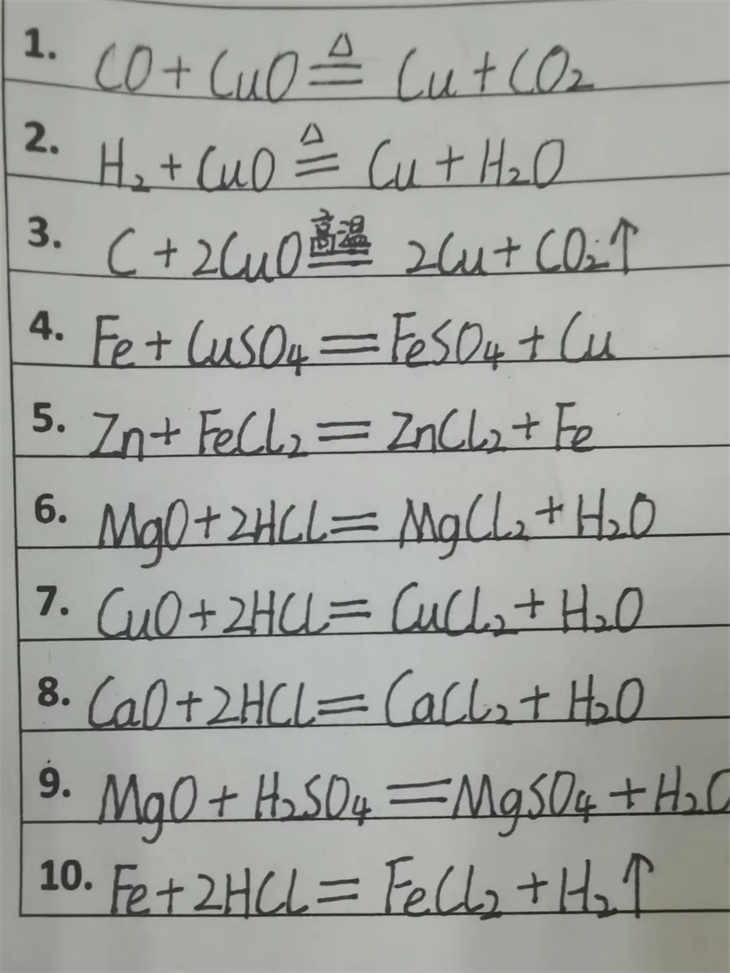 1. CO + CuO ≜ Cu + CO₂
2. H₂ + CuO ≜ Cu + H₂O
3. C + 2CuO 高温== 2Cu + CO₂↑
4. Fe + CuSO₄ == FeSO₄ + Cu
5. Zn + FeCl₂ == ZnCl₂ + Fe
6. MgO + 2HCl == MgCl₂ + H₂O
7. CuO + 2HCl == CuCl₂ + H₂O
8. CaO + 2HCl == CaCl₂ + H₂O
9. MgO + H₂SO₄ == MgSO₄ + H₂O
10. Fe + 2HCl == FeCl₂ + H₂↑